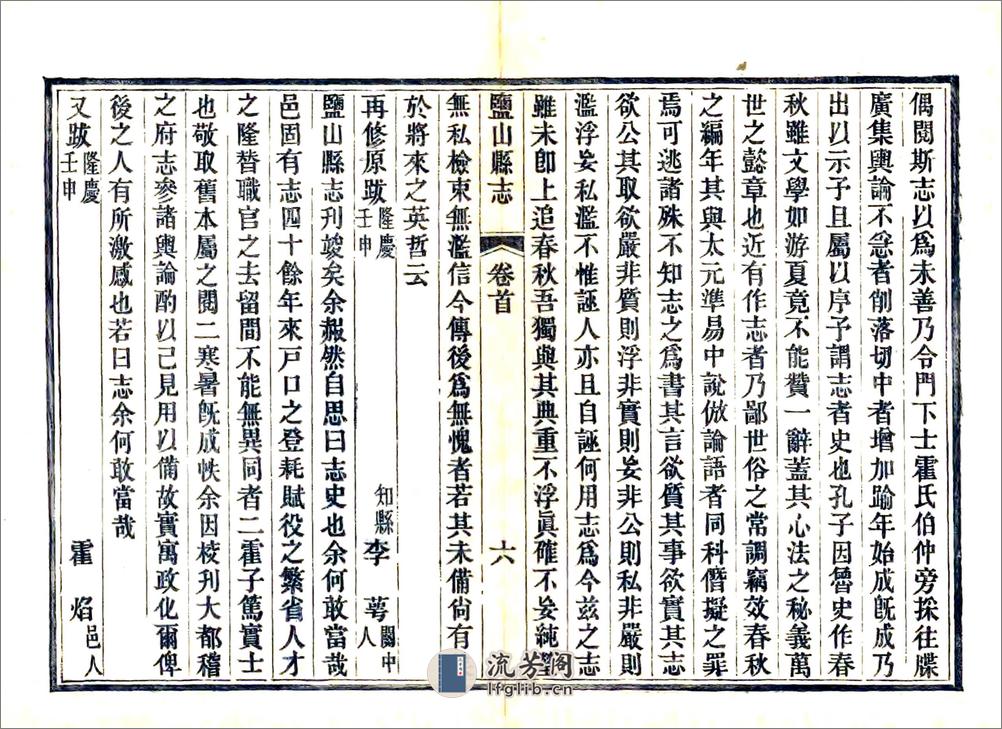 偶閱斯志以爲未善乃令門下士霍氏伯仲旁採往牒
廣集輿論不忩者削落切中者增加踰年始成旣成乃
出以示予且屬以序予謂志者史也孔子因魯史作春
秋雖文學如游夏竟不能贊一辭蓋其心法之秘義萬
世之懿章也近有作志者乃鄙世俗之常調竊效春秋
之編年其與太元準易中說倣論語者同科僭擬之罪
焉可逃諸殊不知志之爲書其言欲質其事欲實其志
欲公其取欲嚴非質則浮非實則妄非公則私非嚴則
濫浮妄私濫不惟誣人亦且自誣何用志爲今兹之志
雖未卽上追春秋吾獨與其典重不浮眞確不妄純
鹽山縣志 卷首 六
無私檢束無濫信今傳後爲無愧者若其未備尙有望
於將來之英哲云
再修原跋 隆慶壬申 知縣 李 蕚 關中人
鹽山縣志刋竣矣余赧然自思曰志史也余何敢當哉
邑固有志四十餘年來戸口之登耗賦役之繁省人才
之隆替職官之去留間不能無異同者二霍子篤實士
也敬取舊本屬之閱二寒暑旣成帙余因校刋大都稽
之府志參諸輿論酌以己見用以備故實寓政化爾俾
後之人有所激感也若曰志余何敢當哉
又跋 隆慶壬申 霍 焰 邑人
流芳閣
lfglib.cn